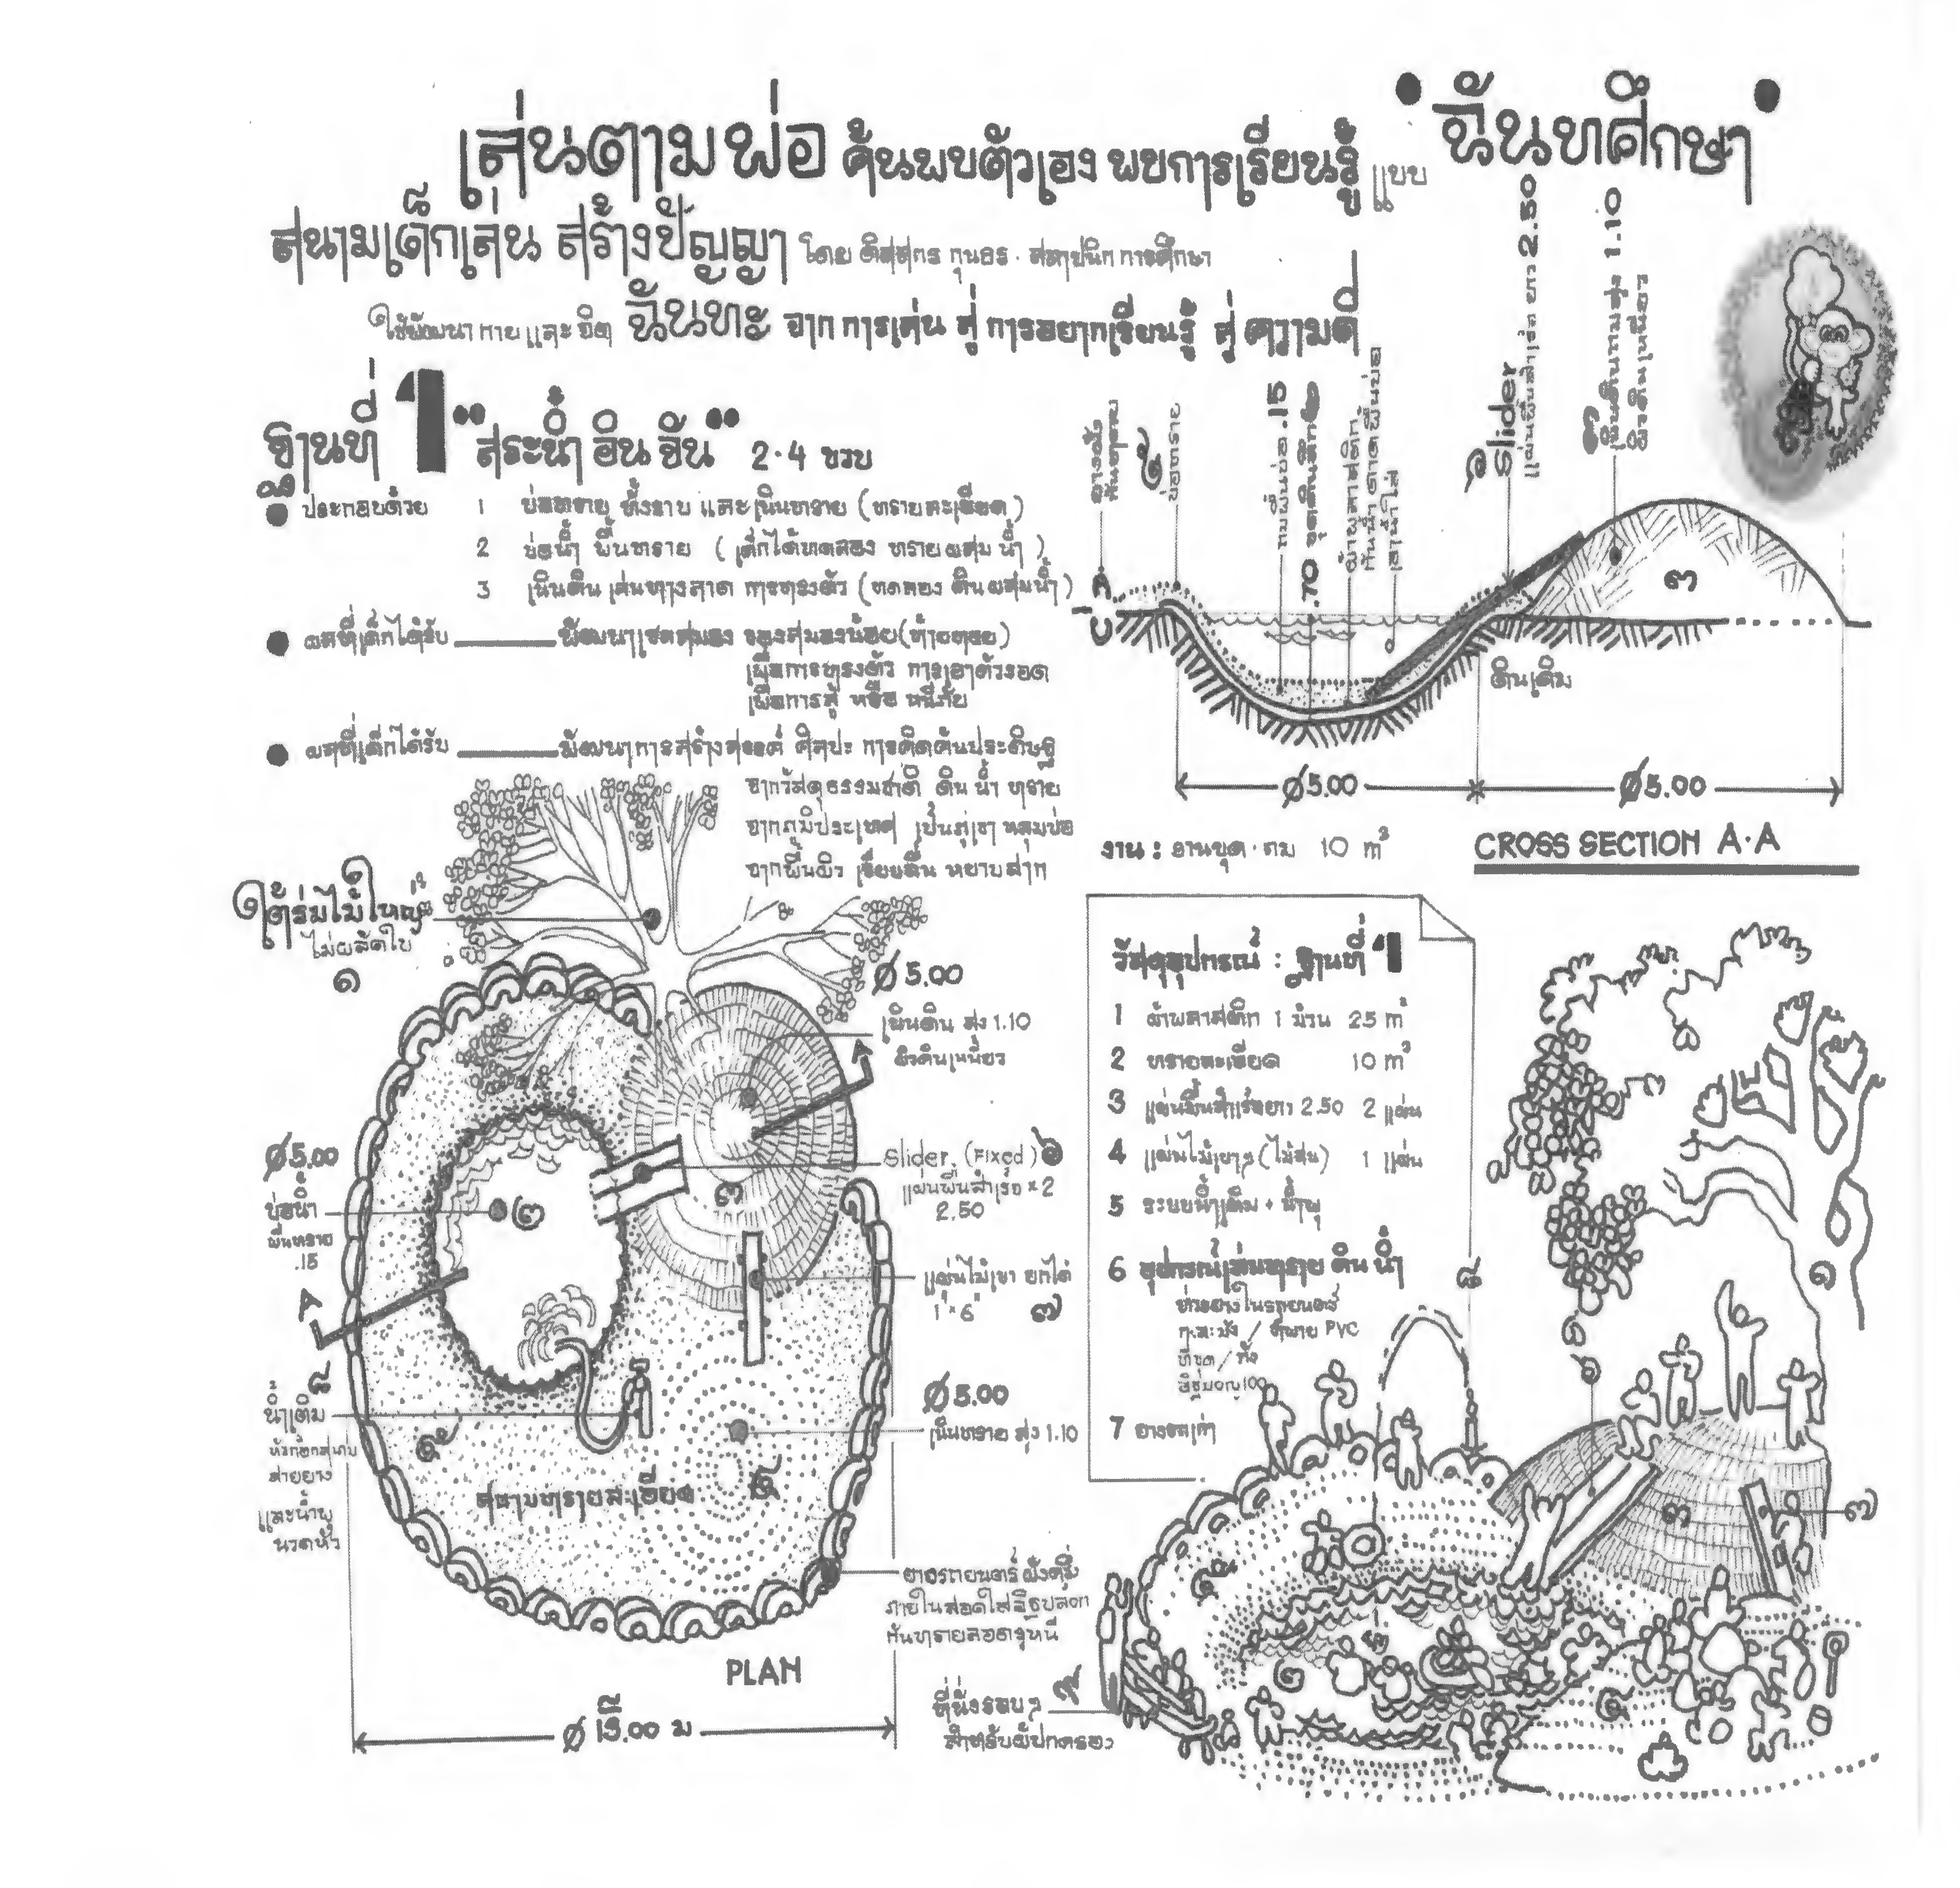 เล่นตามพ่อ ค้นพบตัวเอง พบการเรียนรู้ แบบ "ฉันทศึกษา"
สนามเด็กเล่น สร้างปัญญา โดย ดิสสกร กุนธร · สถาปนิกการศึกษา
ใช้พัฒนา กาย และ จิต ฉันทะ จาก การเล่น สู่ การอยากเรียนรู้ สู่ ความดี
ฐานที่ 1 "สระน้ำ อิน จัน" 2-4 ขวบ
ประกอบด้วย
1 บ่อทราย ทั้งราบ และเนินทราย (ทรายละเอียด)
2 บ่อน้ำ พื้นทราย (เด็กได้ทดลอง ทรายผสมน้ำ)
3 เนินดิน เล่นทางลาด การทรงตัว (ทดลอง ดินผสมน้ำ)
ผลที่เด็กได้รับ พัฒนาเซลสมอง ของสมองน้อย (ท้ายทอย)
เพื่อการทรงตัว การเอาตัวรอด
เพื่อการสู้ หรือ หนีภัย
ผลที่เด็กได้รับ พัฒนาการสร้างสรรค์ ศิลปะ การคิดค้นประดิษฐ์
จากวัสดุธรรมชาติ ดิน น้ำ ทราย
จากภูมิประเทศ เป็นภูเขา หลุมบ่อ
จากพื้นผิว เรียบลื่น หยาบสาก
บ่อทราย
ถมพื้นบ่อ .15
.70 ขุดดินลึก
ผ้าพลาสติก
กันน้ำ ดาดพื้นบ่อ
เอาน้ำใส่
๖ Slider
แผ่นพื้นสำเร็จ ยาว 2.50
๓ เนินดินถมสูง 1.10
ผิวดินเหนียว
๓
ดินเดิม
Ø5.00
Ø5.00
งาน : งานขุด · ถม 10 m³
CROSS SECTION A·A
ใต้ร่มไม้ใหญ่
ไม่ผลัดใบ
๑
Ø 5.00
เนินดิน สูง 1.10
ผิวดินเหนียว
A
Ø5.00
บ่อน้ำ
พื้นทราย
.15
๒
๓
Slider (Fixed) ๖
แผ่นพื้นสำเร็จ x 2
2.50
แผ่นไม้เขา ยกได้
1" x 6" ๗
A
๘
น้ำเติม
สายยาง
และน้ำพุ
Ø5.00
เนินทราย สูง 1.10
สนามทรายละเอียด
ยางรถยนต์ ฝังครึ่ง
กันทรายลอดรูหนี
PLAN
ที่นั่งรอบๆ ๙
สำหรับผู้ปกครอง
วัสดุอุปกรณ์ : ฐานที่ 1
1 ผ้าพลาสติก 1 ม้วน 25 m²
2 ทรายละเอียด 10 m³
3 แผ่นพื้นสำเร็จยาว 2.50 2 แผ่น
4 แผ่นไม้เขาๆ (ไม้สน) 1 แผ่น
5 ระบบน้ำเติม + น้ำพุ
6 อุปกรณ์เล่นทราย ดิน น้ำ
ห่วงยางในรถยนต์
กะละมัง / ท่อ PVC
7 ยางรถเก่า
๘
๑
๖
๓
๗
๒